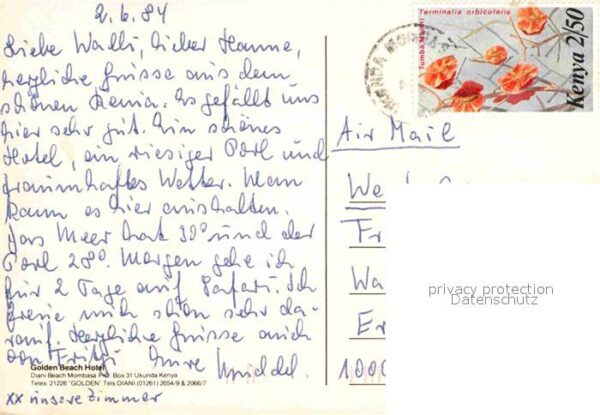 2.6.84
Liebe Walli, lieber Hanne,
herzliche Grüsse aus dem
schönen Kenia. Es gefällt uns
hier sehr gut. Ein schönes
Hotel, ein riesiger Pool und
traumhaftes Wetter. Man
kann es hier aushalten.
Das Meer hat 30° und der
Pool 28°. Morgen gehe ich
für 2 Tage auf Safari. Ich
freue mich schon sehr da-
rauf. Herzliche Grüsse auch
von Eure
Golden Beach Hotel
Diani Beach Mombasa P.O. Box 31 Ukunda Kenya
Telex: 21226 "GOLDEN" Tels DIANI (01261) 2054/9 & 2066/7
xx unsere Zimmer
Terminalia orbicularis
Kenya 2/50
Air Mail
We
Fr
Wa
Er
1000
privacy protection
Datenschutz